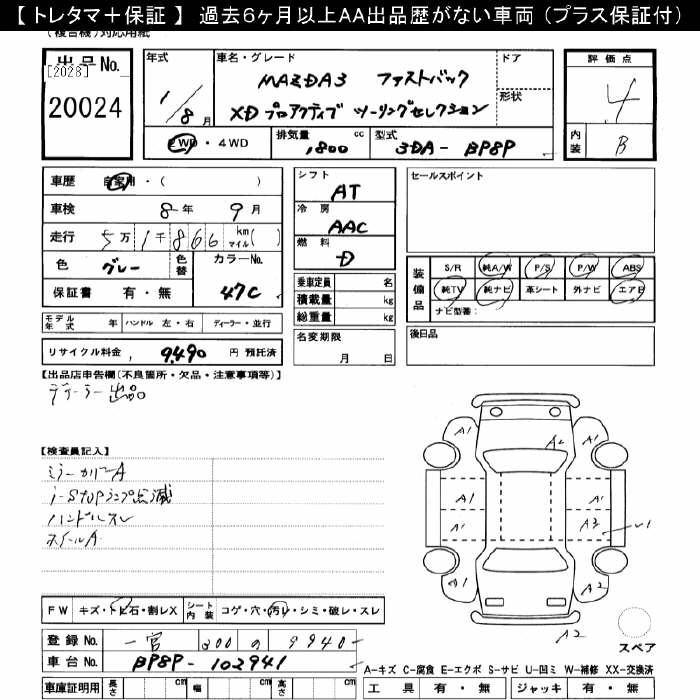 【 トレタマ＋保証 】 過去6ヶ月以上AA出品歴がない車両 (プラス保証付)
(複合機)対応用紙
出品No.
[2028]
20024
年式 1/8月
車名・グレード MAZDA3 ファストバック
XD プロアクティブ ツーリングセレクション
ドア
形状
2WD・4WD
排気量 1,800 cc
型式 3DA-BP8P
評価点 4
内装 B
車歴 自家用・( )
車検 8年 9月
走行 5万1千866 km マイル( )
色 グレー
色替
カラーNo. 47C
保証書 有・無
シフト AT
冷房 AAC
燃料 D
乗車定員 名
積載量 kg
総重量 kg
セールスポイント
装備品
S/R 純A/W P/S P/W ABS
純TV 純ナビ 革シート 外ナビ エアB
ナビ型番：
モデル年式 年 ハンドル 左・右 ディーラー・並行
リサイクル料金 , 9,490 円 預託済
名変期限 月 日
後日品
【出品店申告欄(不良箇所・欠品・注意事項等)】
ディーラー出品
【検査員記入】
ミラーカバーA
i-STOPランプ点滅
ハンドルスレ
ホイールA
A1
A2
A1
A1
A1
A1
A3
A1
A2
A2
FW キズ・トビ石・割レX
シート内装 コゲ・穴・汚レ・シミ・破レ・スレ
登録No. 一宮 300 の 9940
車台No. BP8P-102941
スペア
A－キズ C－腐食 E－エクボ S－サビ U－凹ミ W－補修 XX－交換済
車庫証明用 長さ cm 幅 cm 高さ cm
工具 有・無 ジャッキ 有・無